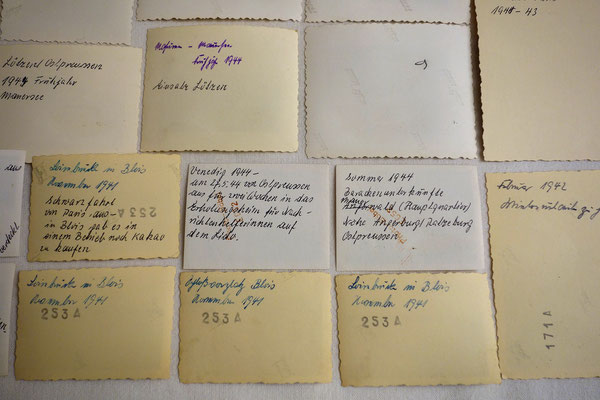 1941 - 43
Lötzen Ostpreussen
1944 Frühjahr
Mauersee
Masuren -
1944
Einsatz Lötzen
aus
Loirebrücke in Blois
November 1941
Schwarzfahrt
von Paris aus -
253 A
in Blois gab es in
einem Betrieb noch Kakao
zu kaufen
Venedig 1944 -
am 27.5.44 von Ostpreussen
aus für zwei Wochen in das
Erholungsheim für Nach-
richtenhelferinnen auf
dem Lido.
Sommer 1944
Barackenunterkünfte
Mauerwald (Hauptquartier)
Nähe Angerburg
Ostpreussen
Februar 1942
171 A
Loirebrücke in Blois
November 1941
253 A
Schloßvorplatz Blois
November 1941
253 A
Loirebrücke in Blois
November 1941
253 A